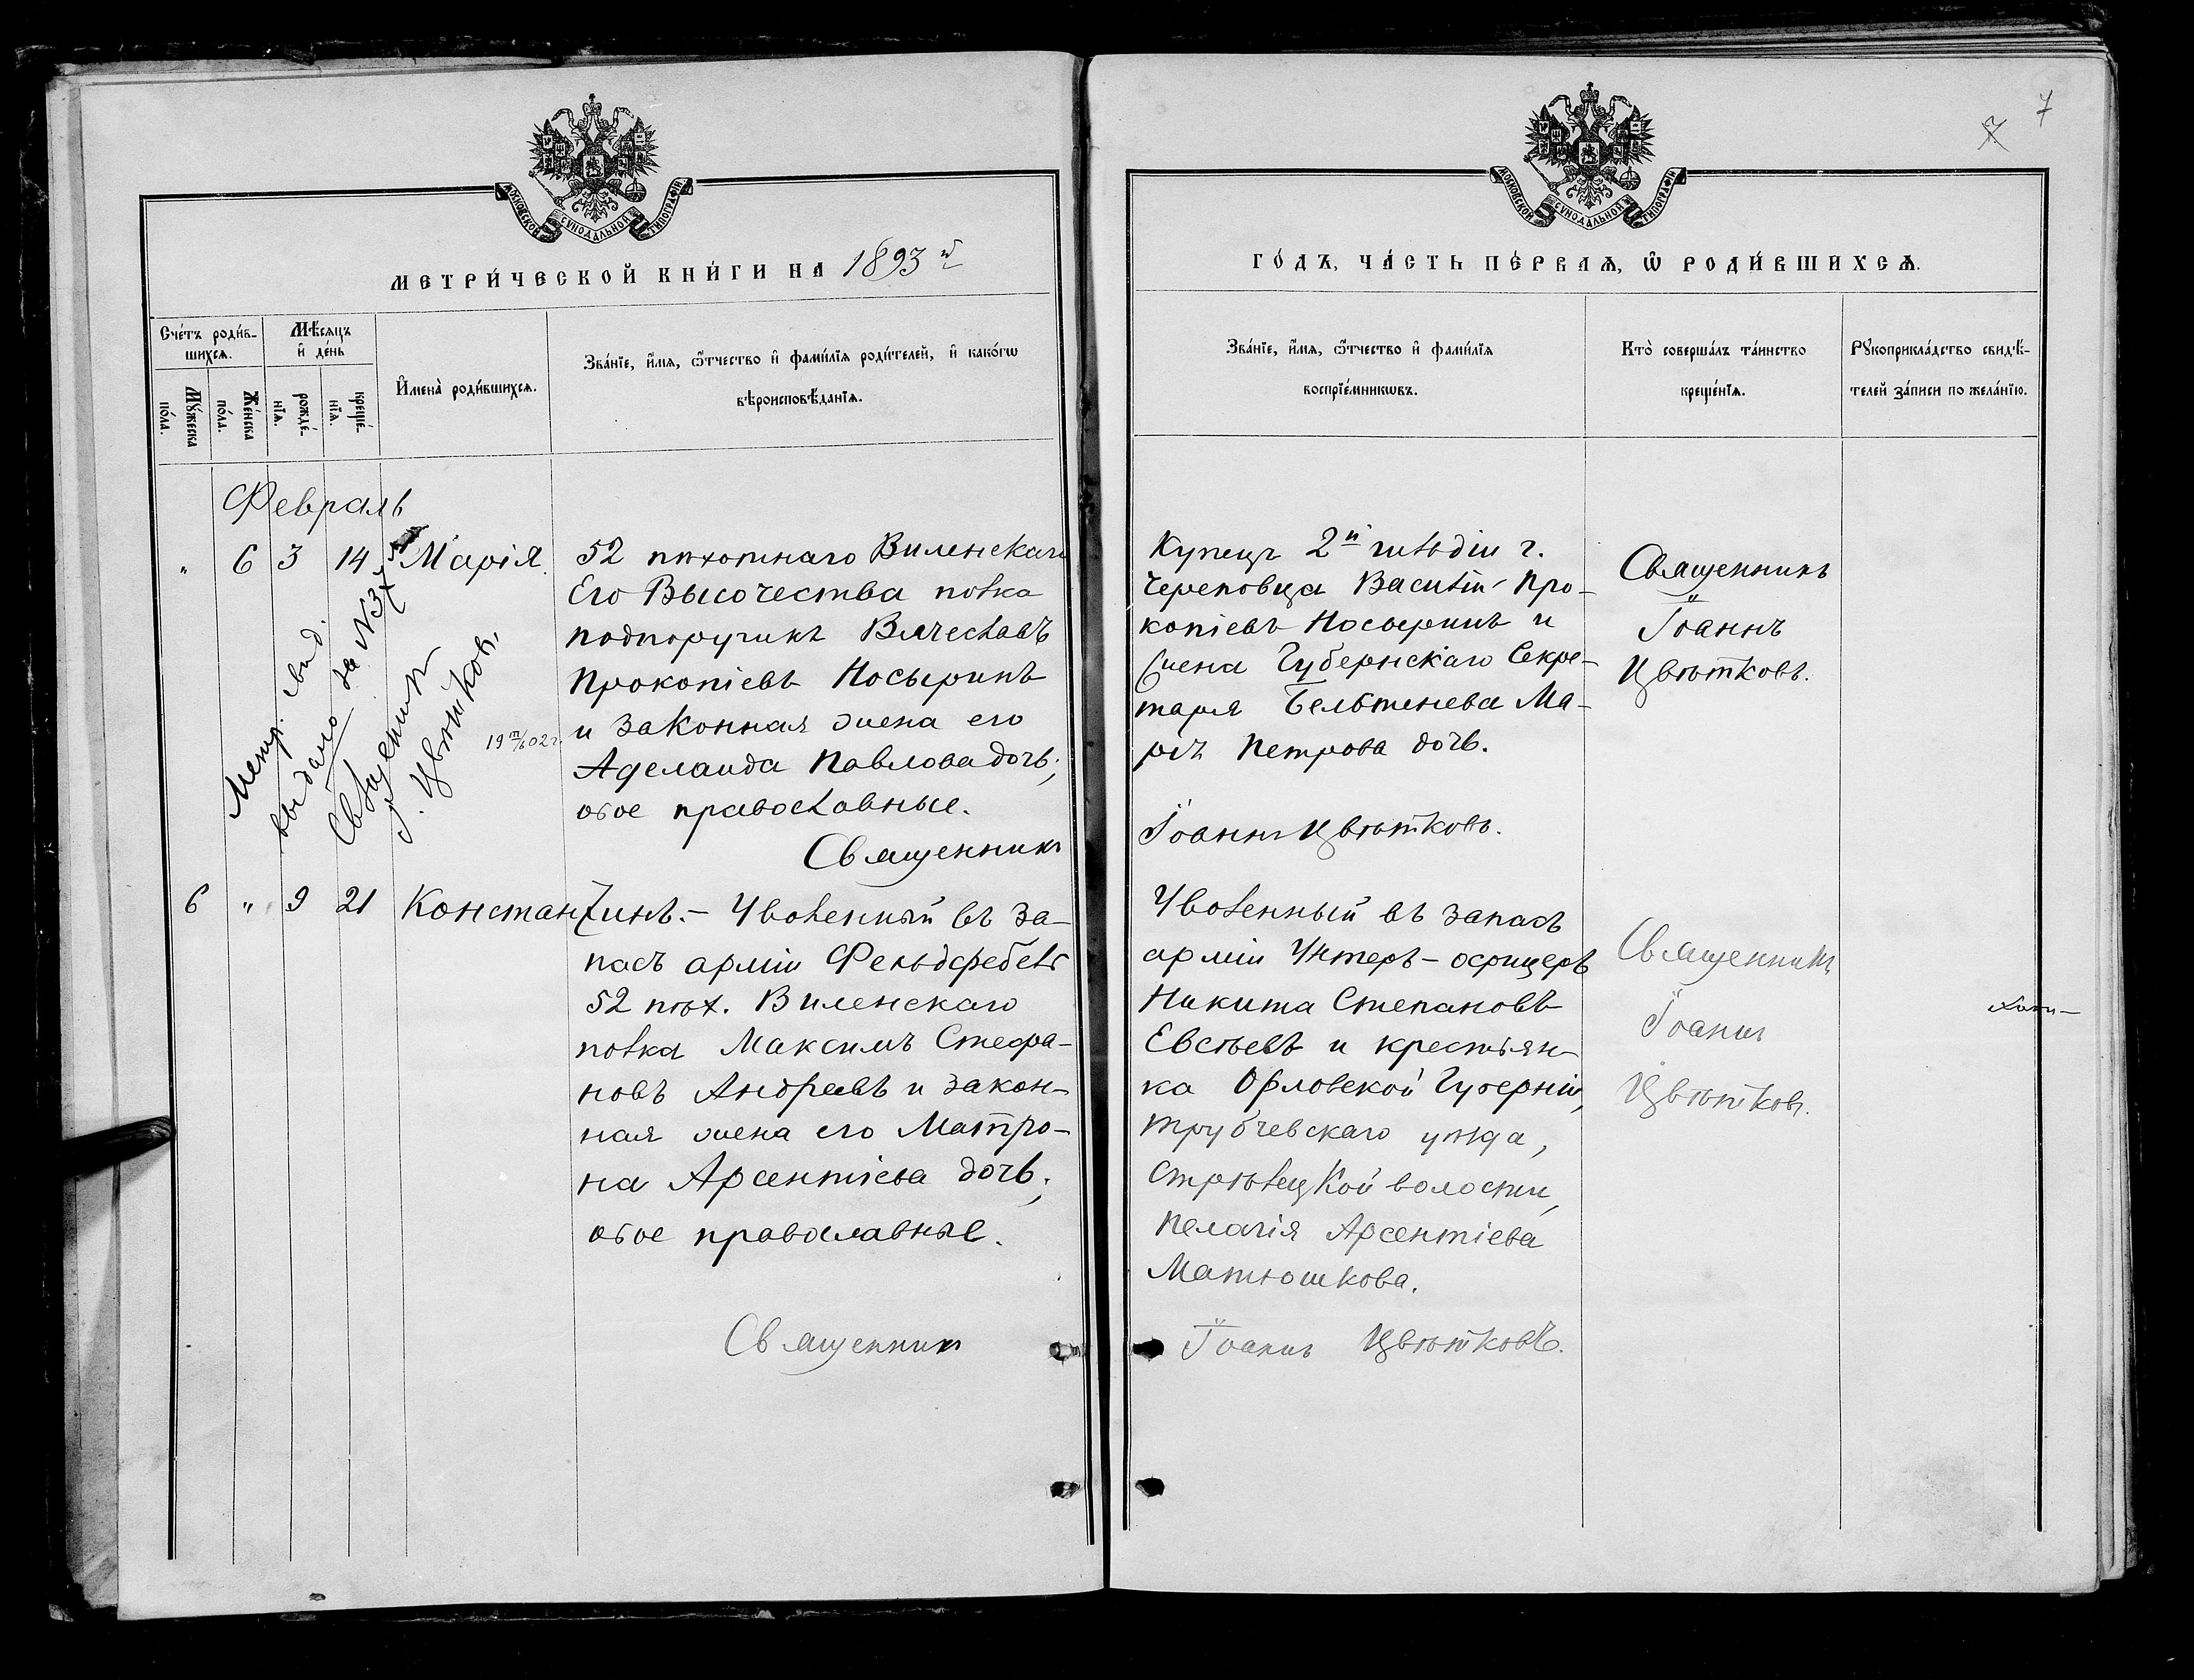 МОСКОВСКОЙ СѴНОДАЛЬНОЙ ТИПОГРАФІИ
МЕТРИ́ЧЕСКОЙ КНИ́ГИ НА 1893й
Сче́тъ роди́в-
шихсѧ.
Мѣ́сѧцъ
и҆ де́нь
Мꙋ́жеска
по́ла.
Же́нска
по́ла.
рожде́-
нїѧ.
креще́-
нїѧ.
И҆мена̀ роди́вшихсѧ.
Зва́нїе, и҆́мѧ, ѻ҆́тчество и҆ фами́лїѧ роди́телей, и҆ како́гѡ
вѣроисповѣ́данїѧ.
Февраль
" 6 3 14 Марія.
52 пѣхотнаго Виленскаго
Его Высочества полка
подпоручикъ Вячеславъ
Прокопіевъ Носыринъ
и законная жена его
Аделаида Павлова дочь;
обое православные.
Священникъ
Метр. свид.
выдано за №37
Священникъ
І. Цвѣтковъ,
6 " 9 21 Константинъ. – Уволенный въ за-
пасъ арміи Фельдфебель
52 пѣх. Виленскаго
полка Максимъ Стефа-
новъ Андреевъ и закон-
ная жена его Матро-
на Арсентіева дочь;
обое православные.
Священникъ
7
7
МОСКОВСКОЙ СѴНОДАЛЬНОЙ ТИПОГРАФІИ
ГО́ДЪ, ЧА́СТЬ ПЕ́РВАѦ, Ѽ РОДИ́ВШИХСѦ.
Зва́нїе, и҆́мѧ, ѻ҆́тчество и҆ фами́лїѧ
воспрїе́мникѡвъ.
Кто̀ соверша́лъ та́инство
креще́нїѧ.
Рꙋкоприкла́дство свидѣ́-
телей за́писи по жела́нїю.
Купецъ 2й гильдіи г.
Череповца Василій Про-
копіевъ Носыринъ и
жена Губернскаго Секре-
таря Бельтенева Ма-
рія Петрова дочь.
Іоаннъ Цвѣтковъ.
Священникъ
Іоаннъ
Цвѣтковъ.
Уволенный въ запасъ
арміи Унтеръ-офицеръ
Никита Степановъ
Евсѣевъ и крестьян-
ка Орловской Губерніи,
Трубчевскаго уѣзда,
Стрѣлецкой волости,
Пелагія Арсентіева
Матюшкова.
Іоаннъ Цвѣтковъ.
Священникъ
Іоаннъ
Цвѣтковъ.